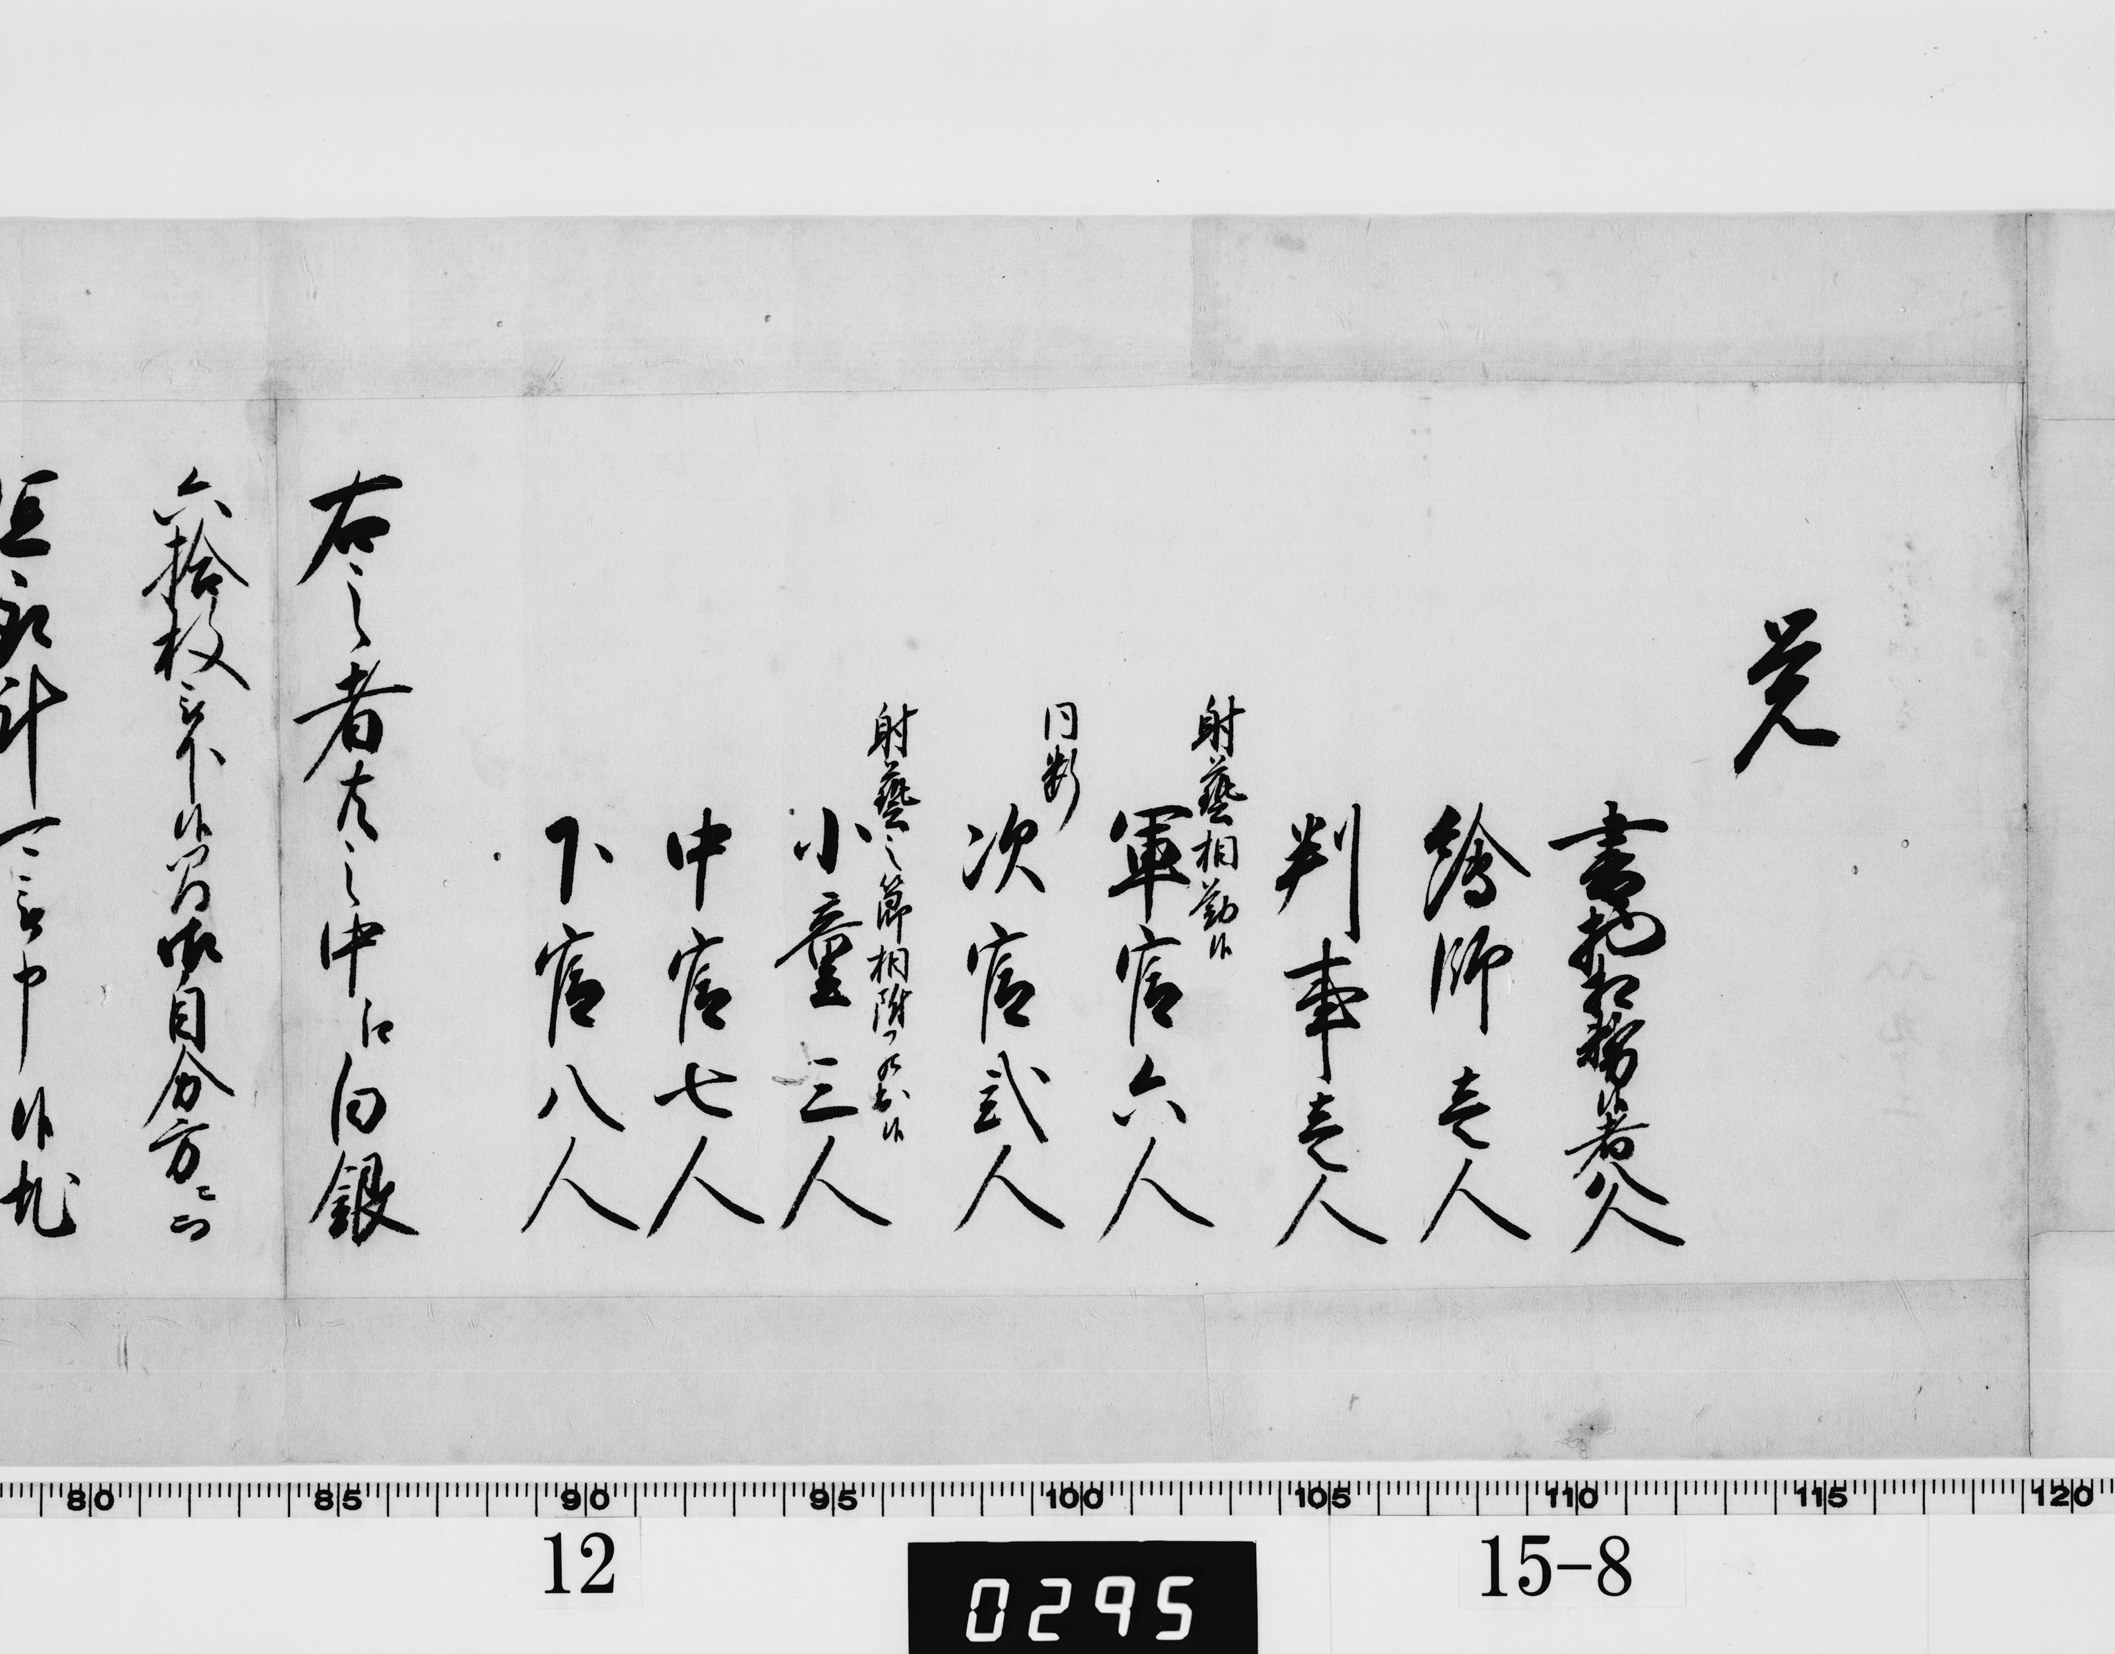 覚
書礼相務候者八人
繪師壱人
判事壱人
射藝相勤候
軍官六人
同断
次官弐人
射藝之節相附罷出候
小童三人
中官七人
下官八人
右之者共之中江白銀
六拾枚被下候間御自分方ニ而
80 85 90 95 100 105 110 115 120
12
0295
15-8